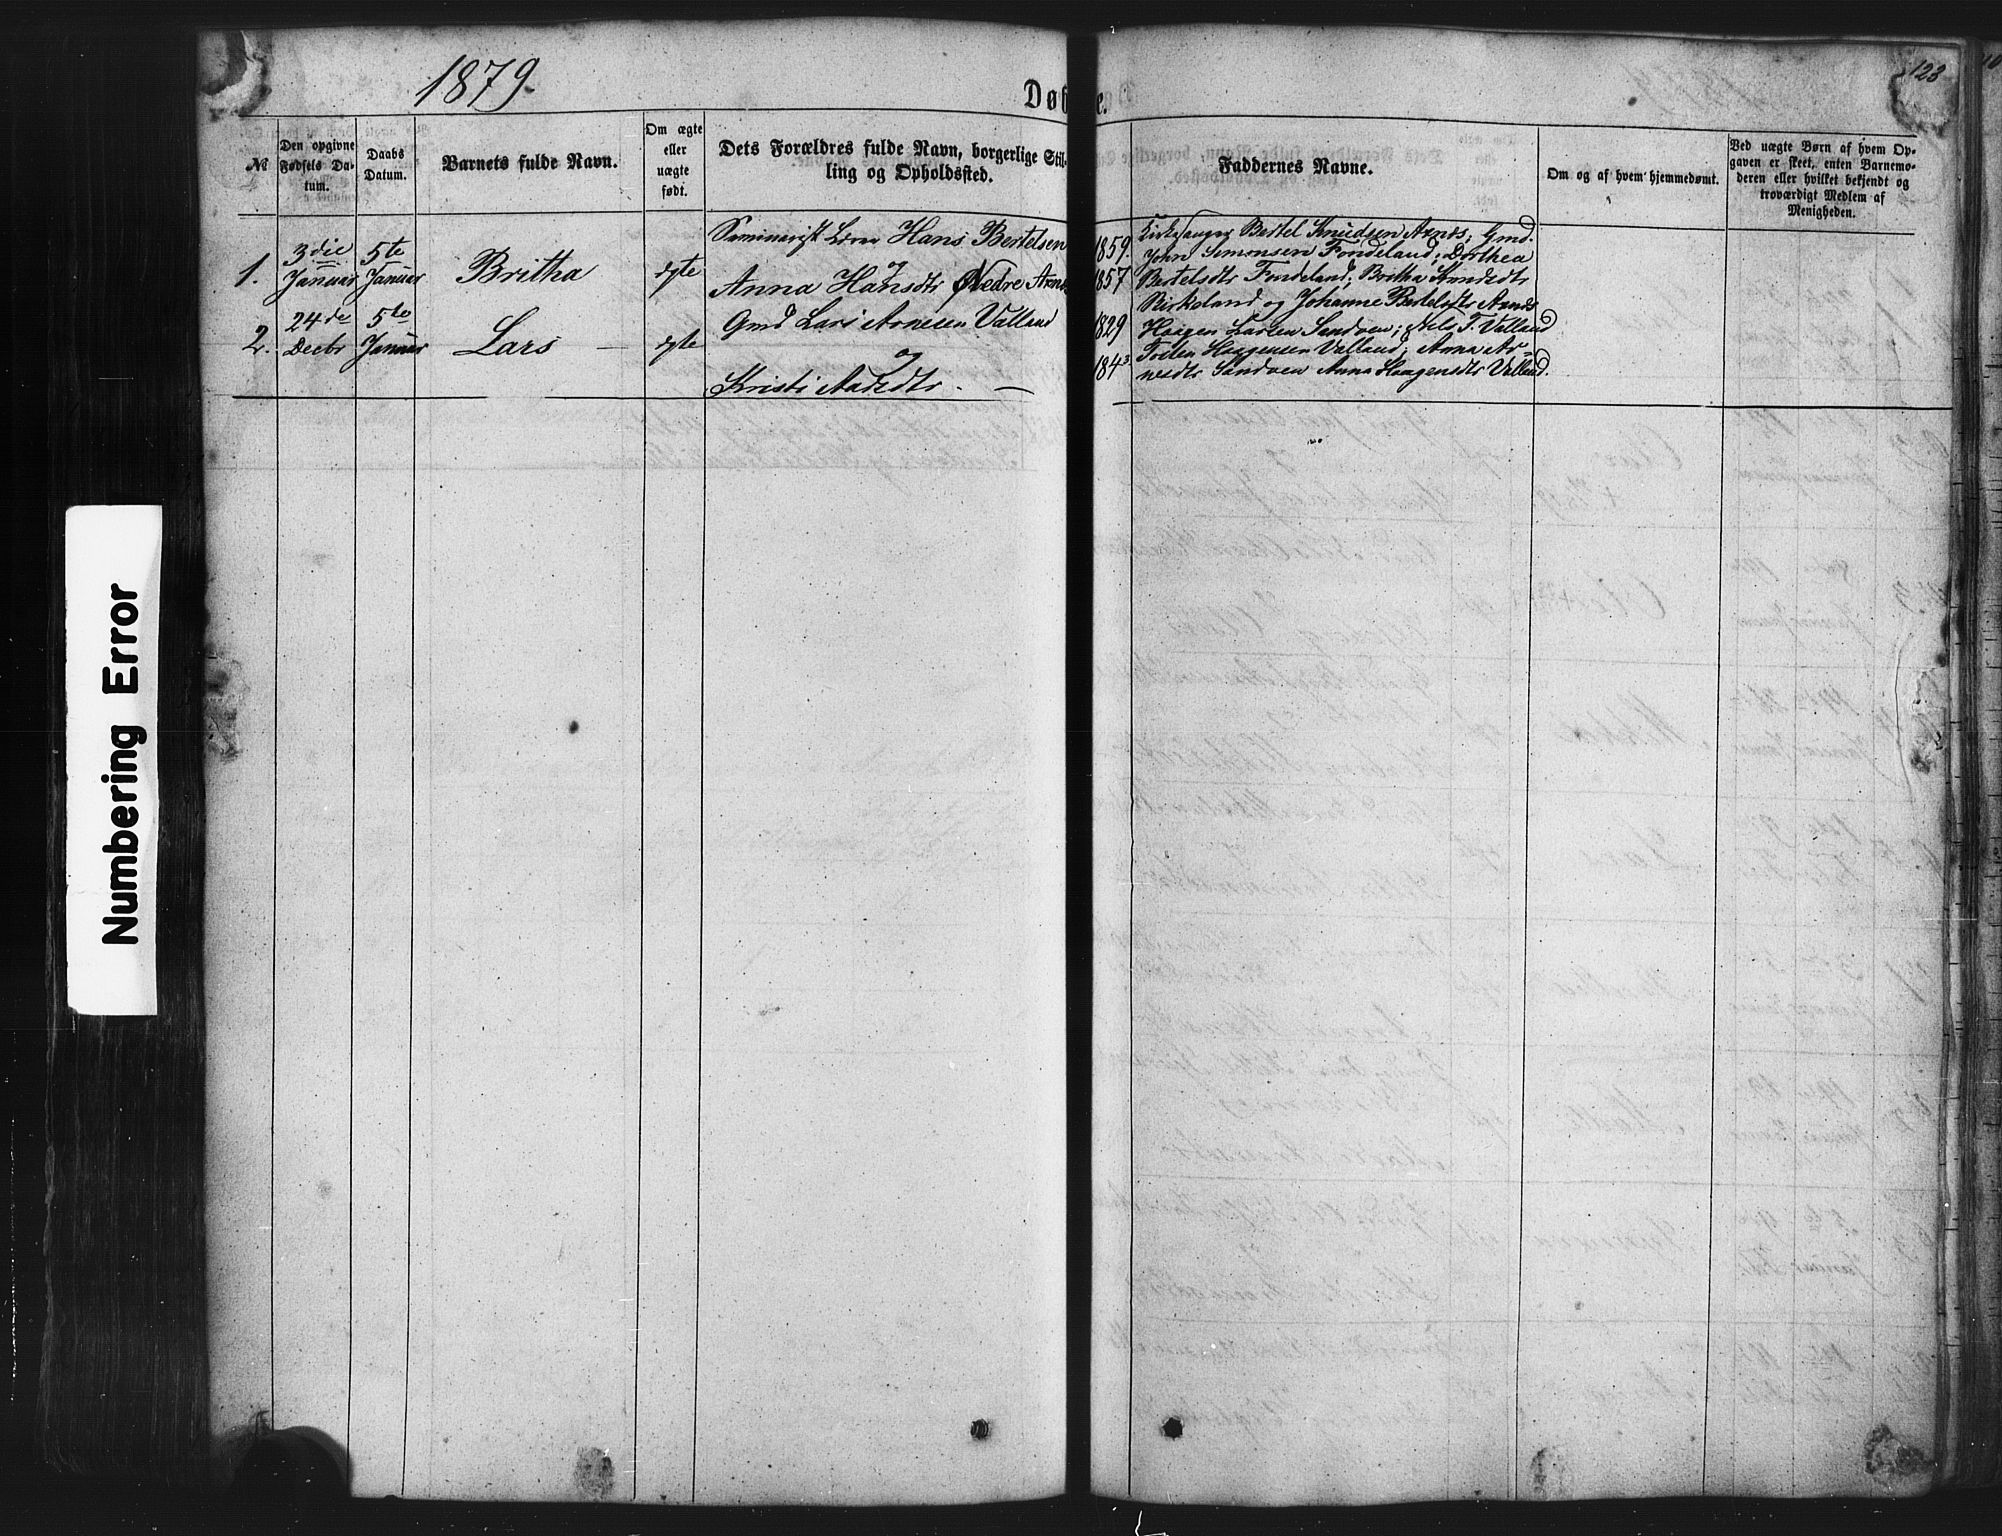 1879.
Døbte.
123
№
Den opgivne Fødsels Datum.
Daabs Datum.
Barnets fulde Navn.
Om ægte eller uægte født.
Dets Forældres fulde Navn, borgerlige Stilling og Opholdssted.
Faddernes Navne.
Om og af hvem hjemmedøbt.
Ved uægte Børn af hvem Opgaven er skeet, enten Barnemoderen eller hvilket bekjendt og troværdigt Medlem af Menigheden.
1.
3die Januar
5te Januar
Britha
ægte
Seminarist Lærer Hans Bertelsen
og
Anna Hansdtr Nedre Arnes
1859.
1857
Kirkesanger Bertel Knudsen Arnes; Gmd.
John Simonsen Fondeland; Dorthea
Bertelsdtr Fondeland; Britha Knudsdtr
Birkeland og Johanne Bertelsdtr Arnes
2.
24de Decbr
5te Januar
Lars
ægte
Gmd Lars Arnesen Valland
og
Kristi Aadsdtr. —
1829
1843
Haagen Larsen Sandven; Nels T. Valland
Haagensen Valland; Anna Ar=
nesdtr Sandven Anna Haagensdtr Valland.
Numbering Error